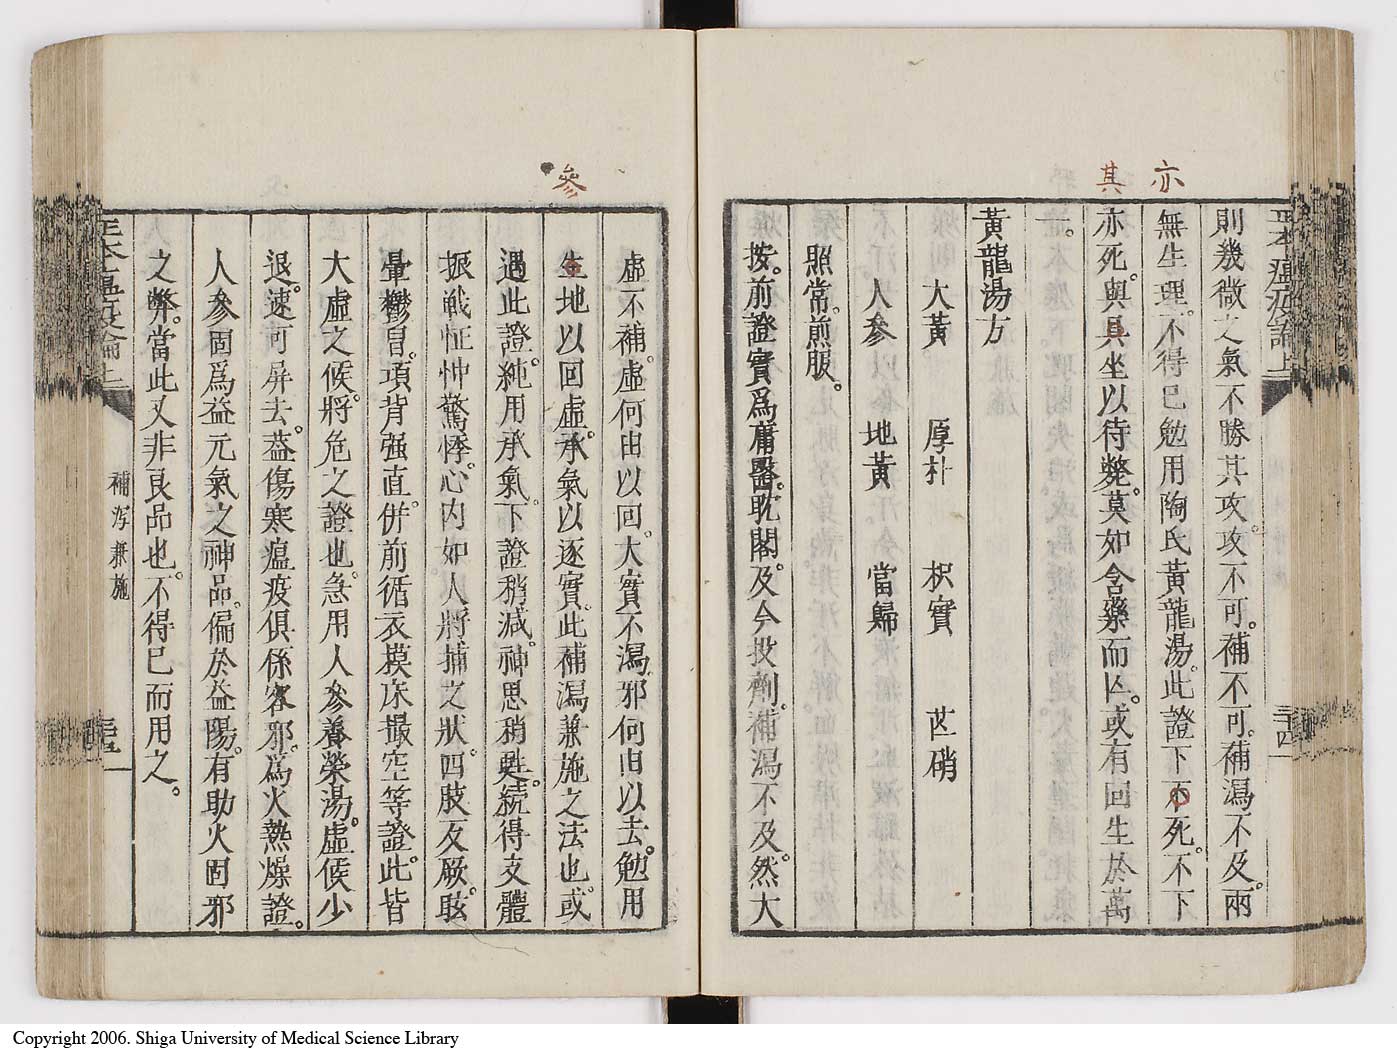 亦
其
正本瘟疫論上
三十四
則幾微之氣不勝其攻。攻不可。補不可。補瀉不及。兩
無生理。不得已勉用陶氏黃龍湯。此證下不死。不下
亦死。與具坐以待斃。莫如含藥而亾。或有回生於萬
一。
黃龍湯方
大黃 厚朴 枳實 芒硝
人參 地黃 當歸
照常煎服。
按。前證實爲庸醫。耽閣。及今投劑。補瀉不及。然大
參
虛不補。虛何由以回。大實不瀉。邪何由以去。勉用
生地以回虛。承氣以逐實。此補瀉兼施之法也。或
遇此證。純用承氣。下證稍減。神思稍甦。続得支體
振戰怔忡驚悸。心内如人將捕之狀。四肢反厥。眩
暈鬱冒。項背强直。併前循衣摸床撮空等證。此皆
大虛之候。將危之證也。急用人參養榮湯。虛候少
退。速可屏去。葢傷寒瘟疫俱係客邪。爲火熱燥證。
人參固爲益元氣之神品。偏於益陽。有助火固邪
之弊。當此又非良品也。不得已而用之。
補瀉兼施
正本瘟疫論上
三十五
Copyright 2006. Shiga University of Medical Science Library